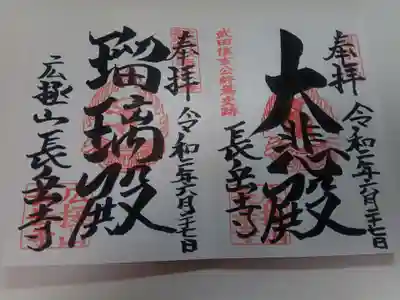 奉拝 令和二年六月二十七日
大悲殿
武田信玄公
長岳寺
奉拝 令和二年六月二十七日
瑠璃殿
広拯山長岳寺